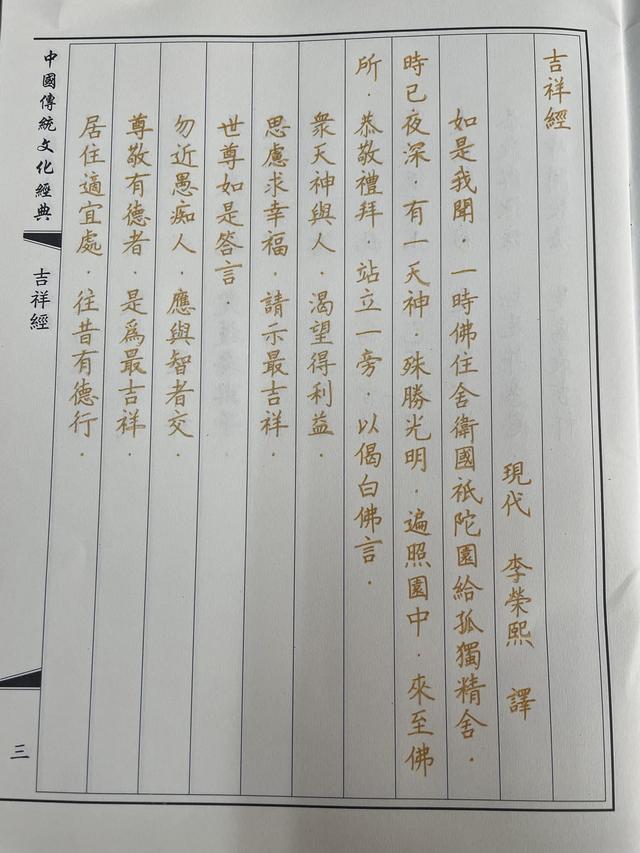 吉祥經
現代　李榮熙　譯
如是我聞．一時佛住舍衛國祇陀園給孤獨精舍．
時已夜深．有一天神．殊勝光明．遍照園中．來至佛
所．恭敬禮拜．站立一旁．以偈白佛言．
衆天神與人．渴望得利益．
思慮求幸福．請示最吉祥．
世尊如是答言．
勿近愚痴人．應與智者交．
尊敬有德者．是爲最吉祥．
居住適宜處．往昔有德行．
中國傳統文化經典
吉祥經
三